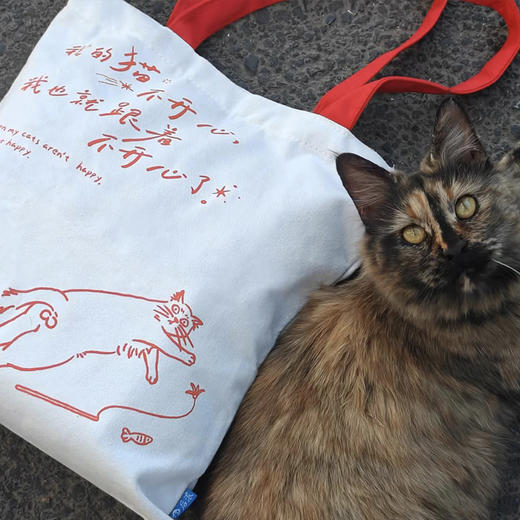 我的猫不开心，
我也就跟着
不开心了。
n my cats aren't happy,
happy.